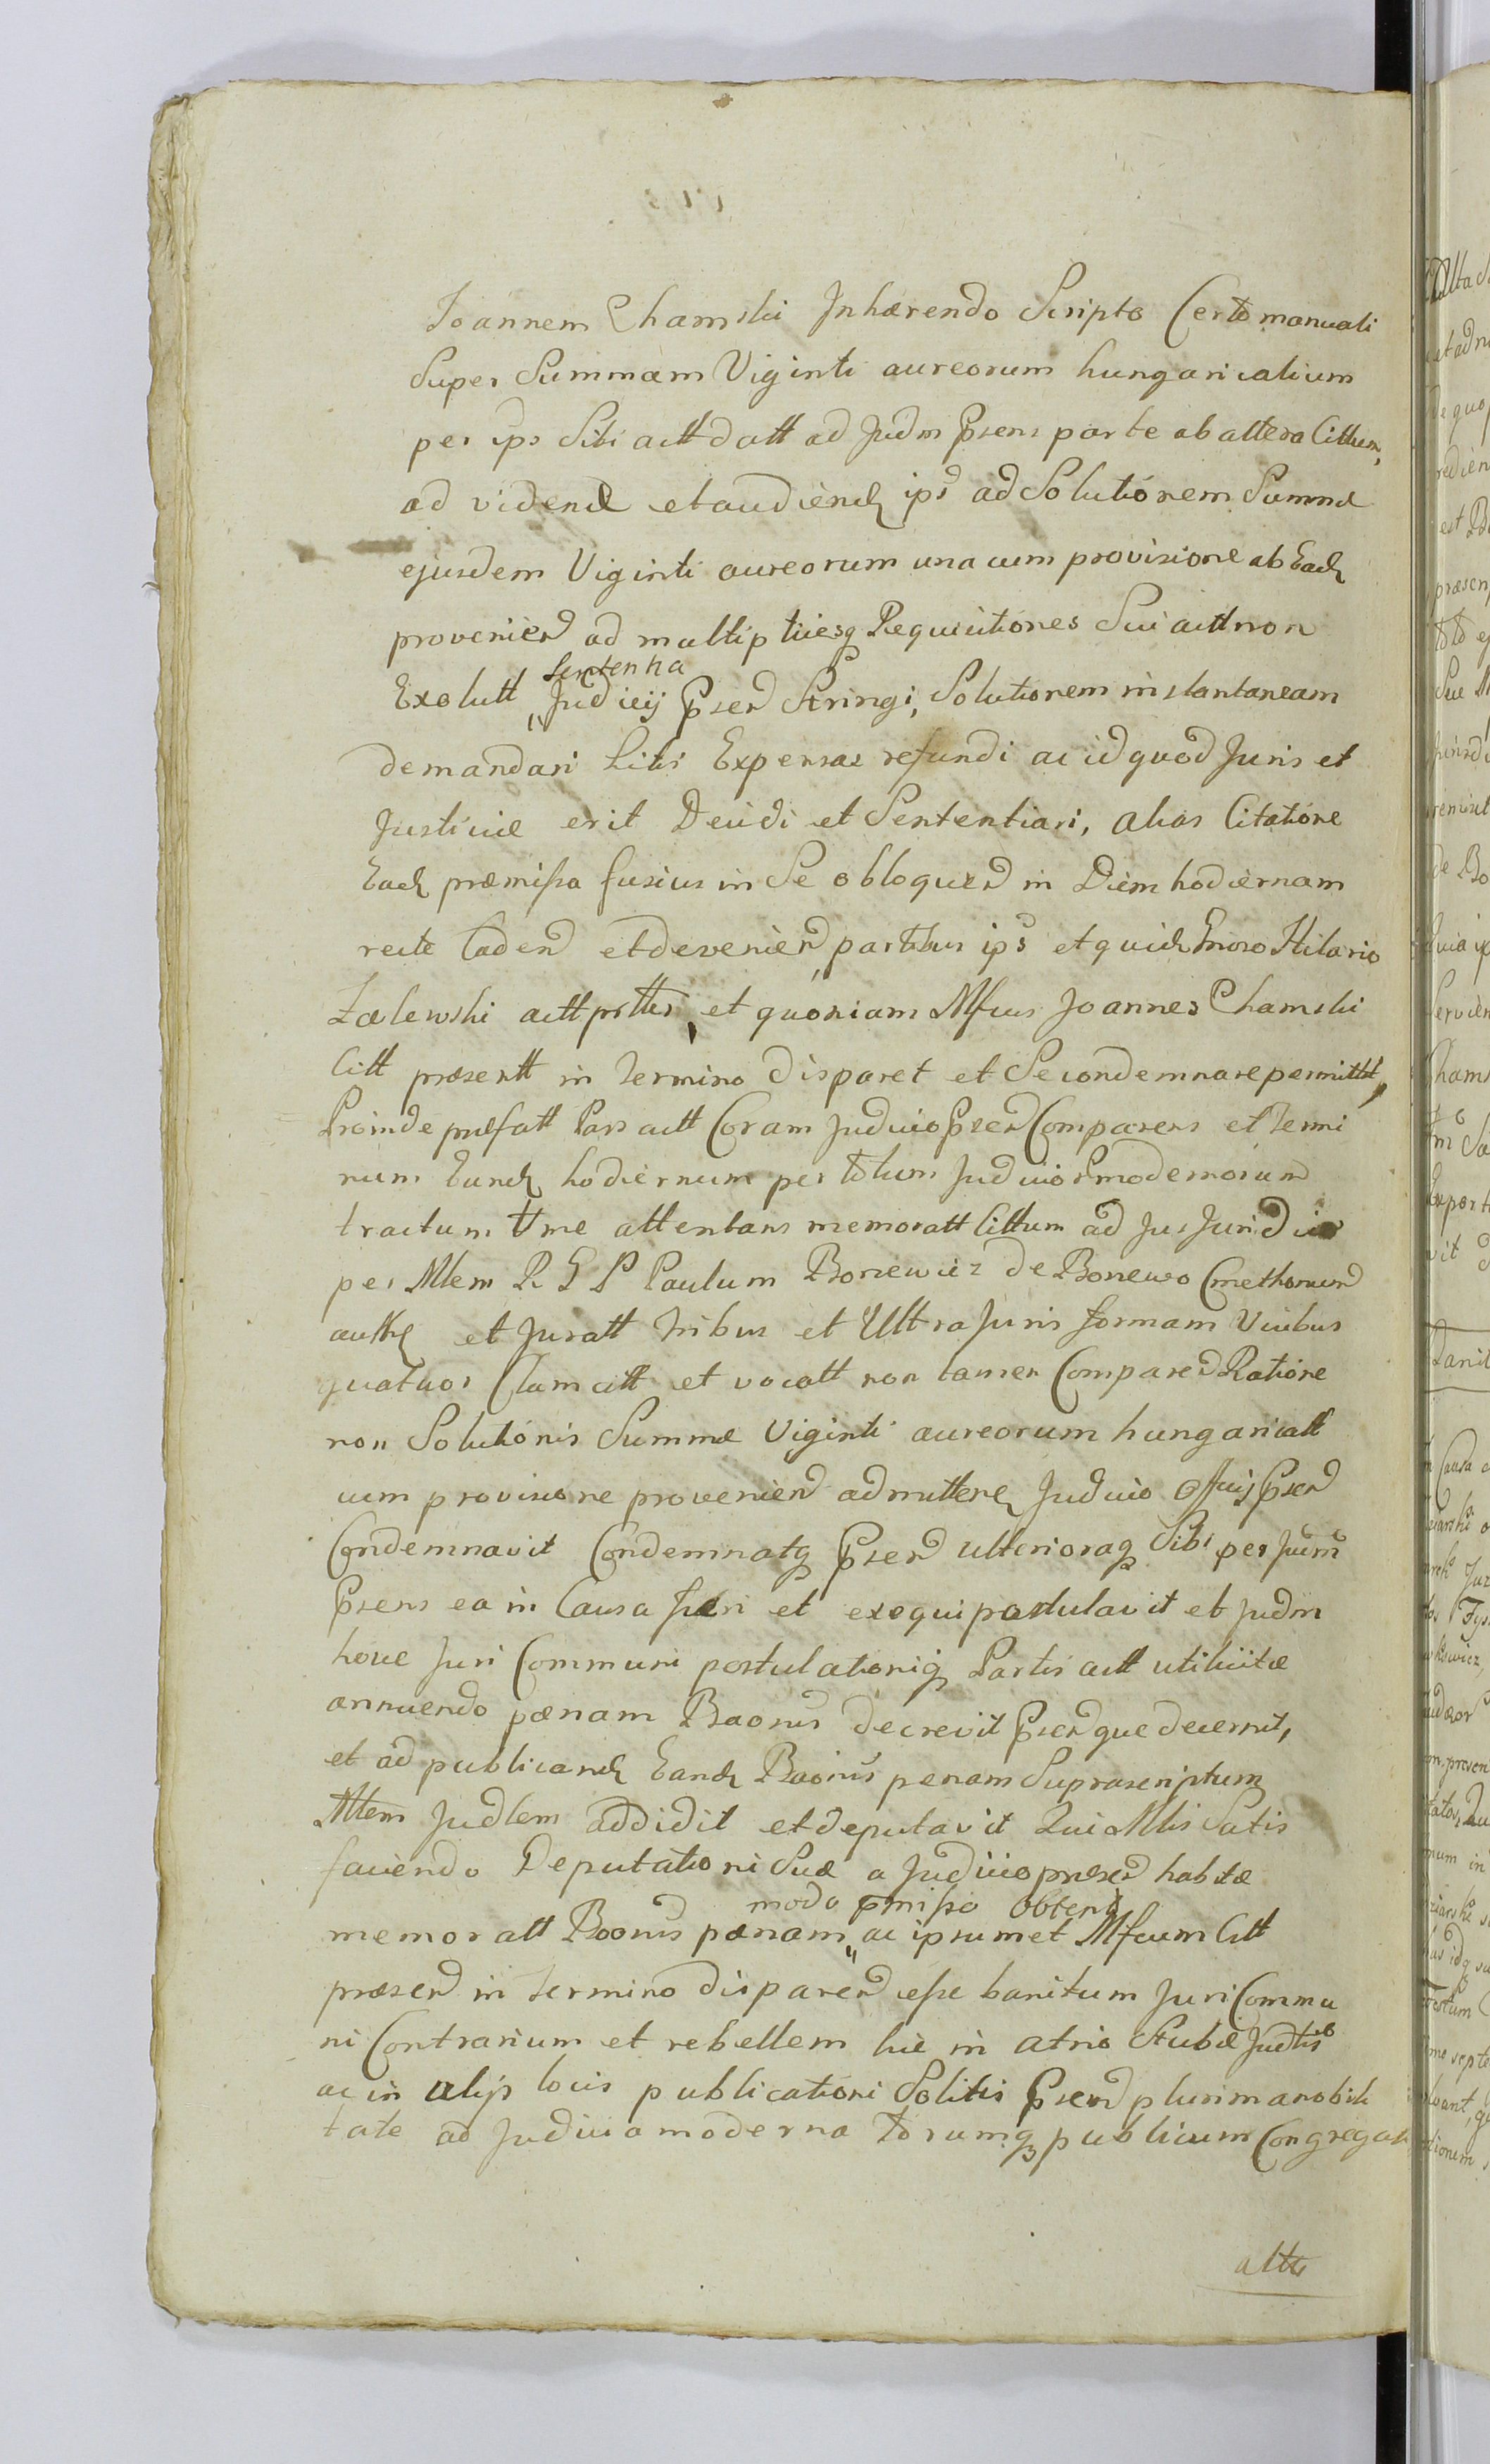 Joannem Chamski Inhærendo Scripto Certo manuali
Super Summam Viginti aureorum hungaricalium
per ips Sibi actt datt ad Judm Prens parte ab altera Cittum,
ad videnđ et audiend ips ad Solutionem Summæ
ejusdem Viginti aureorum una cum provisione ab Ead
provenień ad multip liesq Requisitiones Sui actt non
Exolutt Sententia Judicij Pserń Stringi, Solutionem instantaneam
demandari Sibi Expensas refundi ac id quod Juris et
Justitiæ erit Decidi et Sententiari, alias Citatione
Ead præmissa fusius in Se obloquen in Diem hodiernam
recte Caden et devenien partibus ips et quid Gnroso Hilario
Zalewski actt prtter, et quoniam Mfcus Joannes Chamski
Citt præsentt in termino disparet et Se condemnare permittit,
Proinde præfatt Pars actt Coram Judicio Pseń Comparens et termi
num Eund hodiernum per totum Judicior modernorum
tractum tme attentans memoratt Cittum ad Jus Jurid
per Mlem R G P Paulum Boniewicz de Boniewo Cmethonum
authe et Juratt tribus et Ultra Juris formam Vicibus
quatuor Clam citt et vocatt non tamen Compareń Ratione
non Solutionis Summæ Viginti aureorum hungaricatt
cum provisione provenień admitten Judicio Offcij Pseń
Condemnavit Condemnatq Pseń ulterioraq Sibi per Judm
Psens ea in Causa fieri et exequi postulavit et Judm
hocce Juri Communi postulationiq Partis actt utilicitæ
annuendo pœnam Baonis decrevit Psenque decernit,
et ad publicand Eand Baonis penam Suprascriptum
Mlem Judlem addidit et deputavit Qui Mlis Satis
faciendo Deputationi Suæ a Judicio præseń habitæ
modo pmisso obtent
memoratt Baonis pœnam ac ipsummet Mfcum Citt
præseń in termino dispareń esse banitum Juri Commu
ni Contrarium et rebellem hic in atrio Stubæ Judlis
ac in alijs locis publicationi Solitis Pseń plurima nobili
tate ad Judicia moderna torumq publicum Congregat
actte